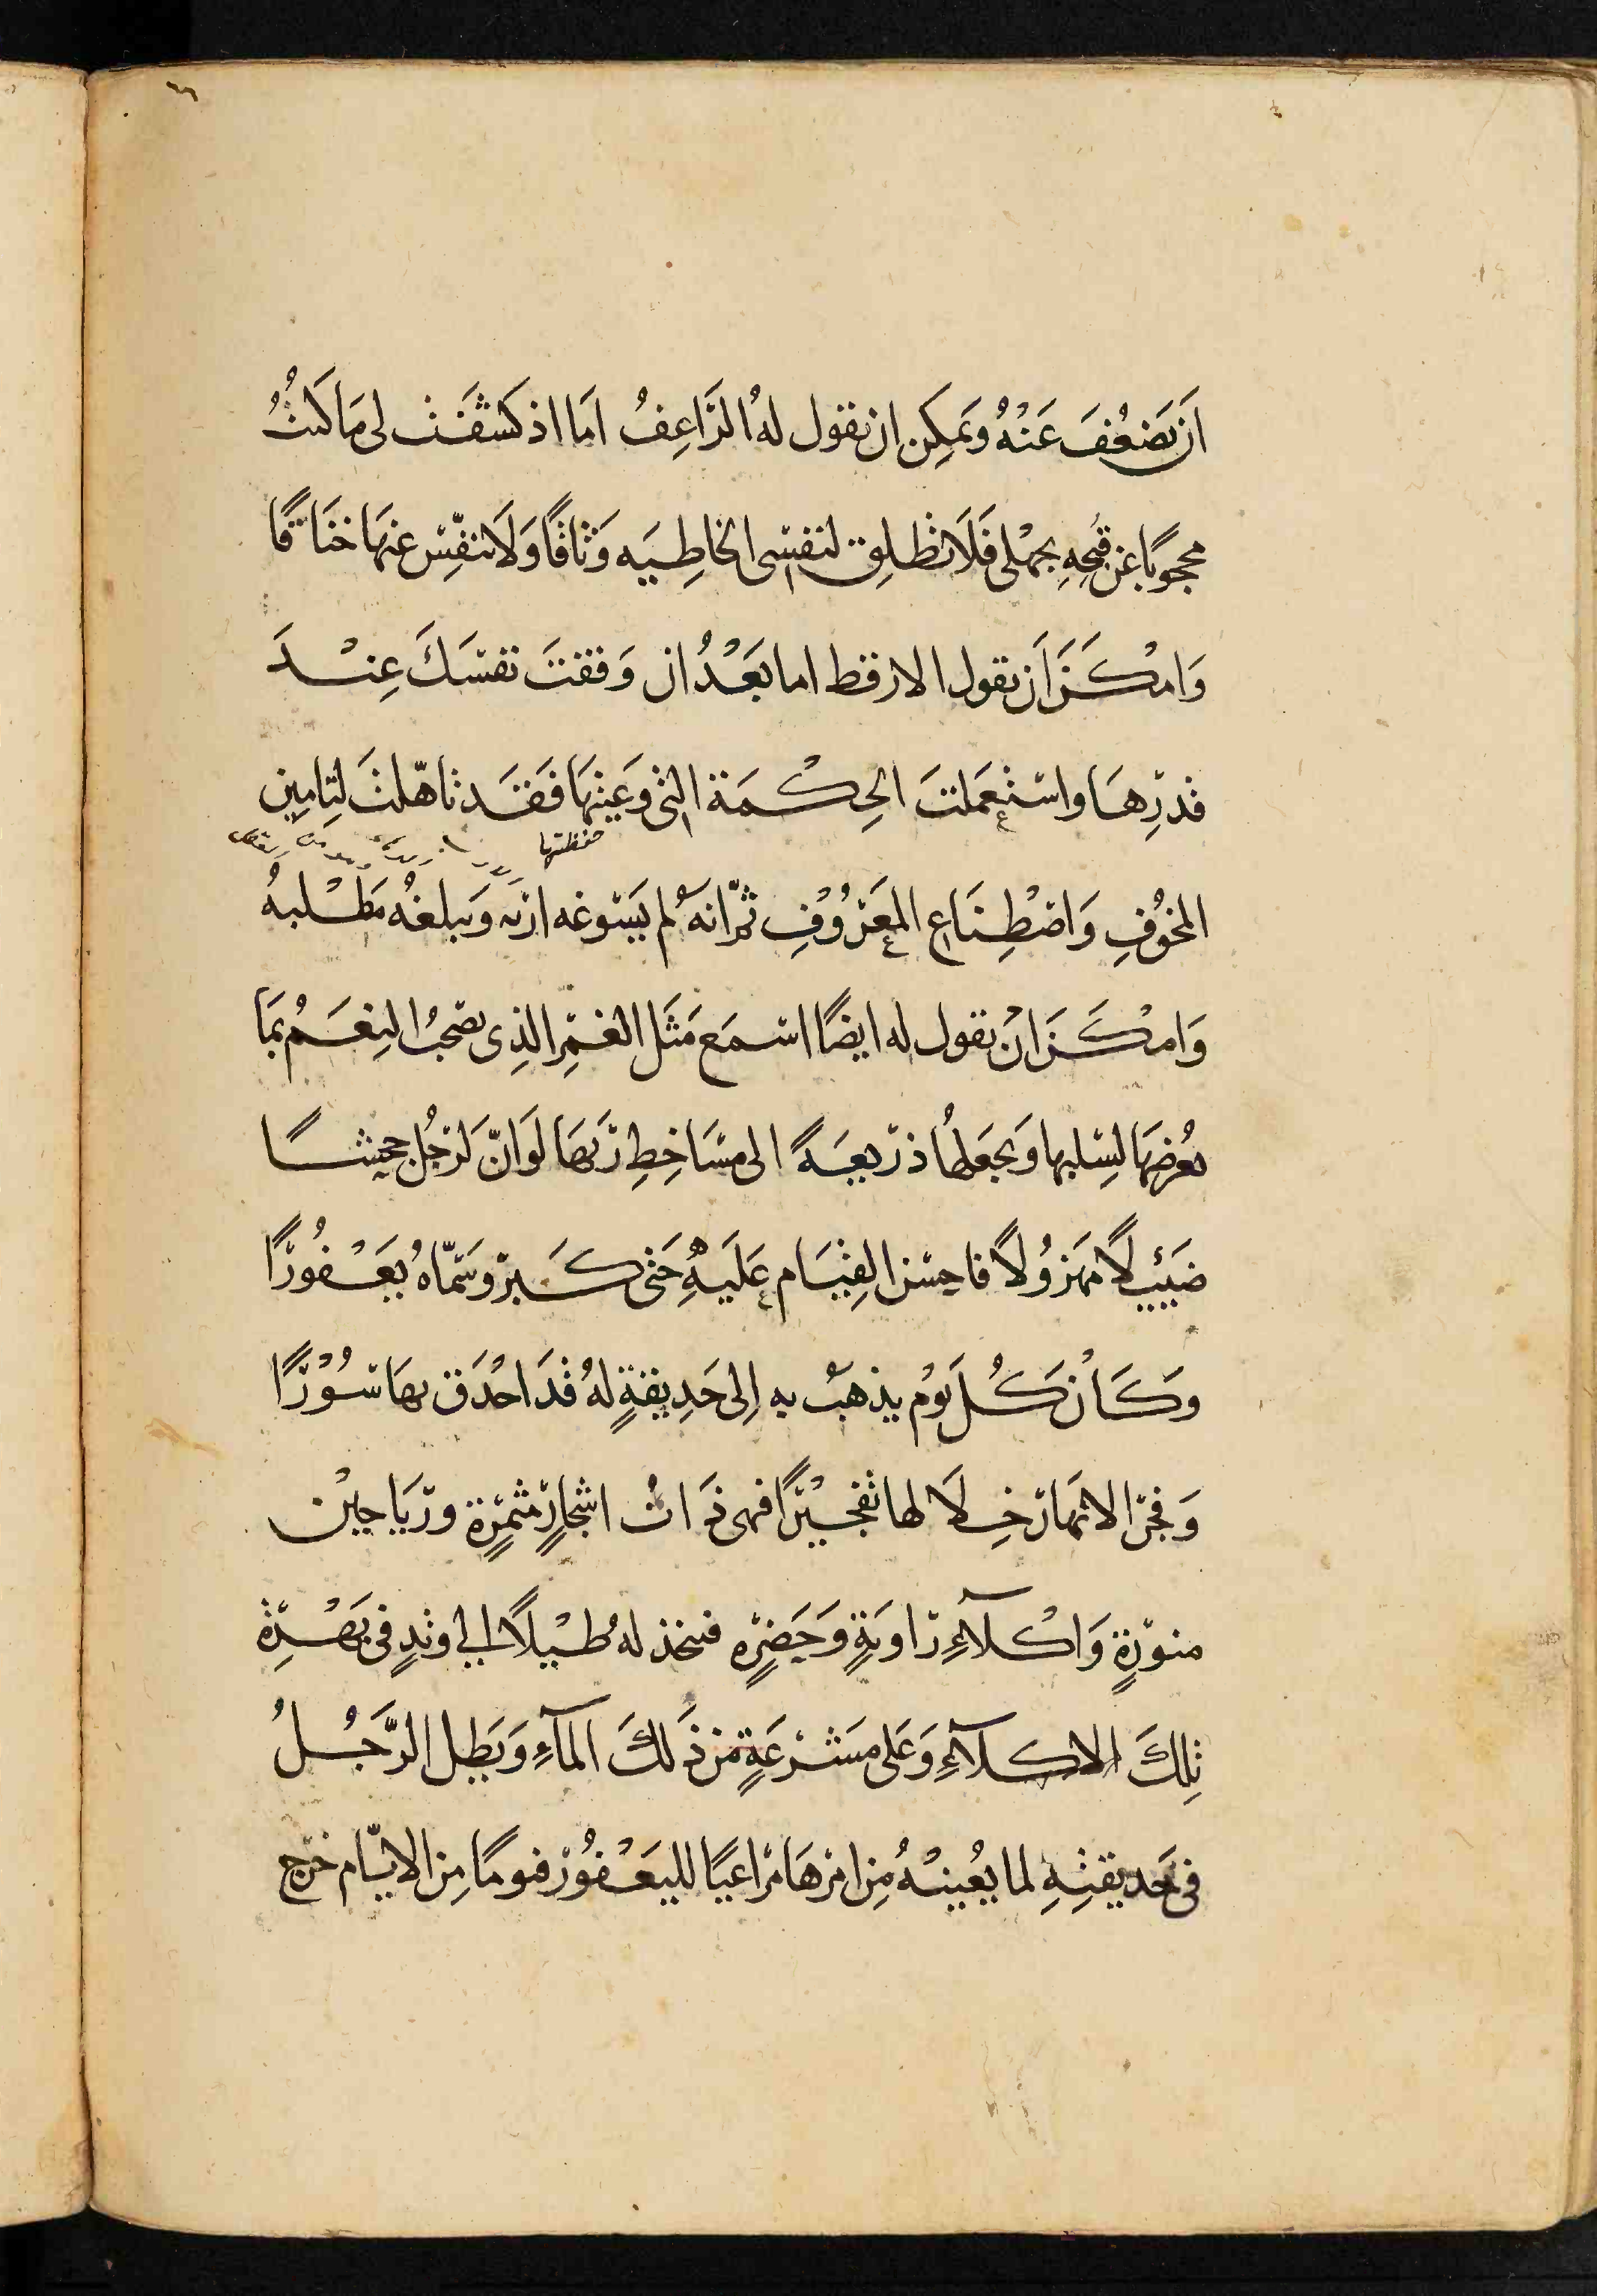 ٦٦
اَن يَضعُفَ عَنْهُ وَيمكِن ان يقول لهُ الرَّاعِفُ امَا اذ كشَفْتَ لى مَا كنتُ
محجوبًا عَن قبحِهِ بجهْلى فَلَا تطلِق لنفسِى الخاطِيَه وَثاقًا وَلَا تنفّس عنهَا خنَاقًا
وَامْكَنَ اَن يقول الارقط اما بَعْدُ ان وَقفتَ نفسَكَ عِنْدَ
قدرِهَا واستعمَلتَ الحِكْمَة التى وَعَيتهَا فَقَد تاهّلتَ لتامِين
حفظتها
المخوُفِ وَاصْطِنَاع المعَرُوْفِ ثمّ انهُ لم يَسّوغه اربه وَيبلغهُ مَطْلبهُ
وَامْكَنَ انْ يقول له ايضًا اسْمَع مَثَل الغمْرِ الذِى يصحبُ النِعَمُ بمَا
يُعرضهَا لسِلبها وَيجعَلهُا ذرِيعَةً الى مسَاخِطِ رَبهَا لوَانّ لرَجُل جحشًا
ضئيلًا مهزُولًا فاحسَن القِيَام عَليهِ حَتى كَبرَ وَسَمّاهُ يَعْفُورًا
وَكَانْ كُل يَومْ يذهبُ به اِلى حَدِيقةٍ لهُ قَد احْدَق بهَا سُوْرًا
وَفجّر الانهَار خِلَا لها تفجِيْرًا فهى ذَاتُ اشجارٍ مثمِرةٍ وريَاحِيْن
منوّرةٍ وَاكْلآءٍ رَاويَةٍ وَحَضِرَه فيتخذ لهُ طِيْلاً الى وتدٍ فى بَهْرَةِ
تِلكَ الاكلآءِ وَعَلى مَشْرعَةٍ مِن ذَلكَ المآءِ وَيَظل الرَّجُلُ
فى حَديقتِهِ لما يُعِينهُ مِن امْرهَا مرَاعيًا لليَعْفُوْر فيومًا مِن الايّام خرَج